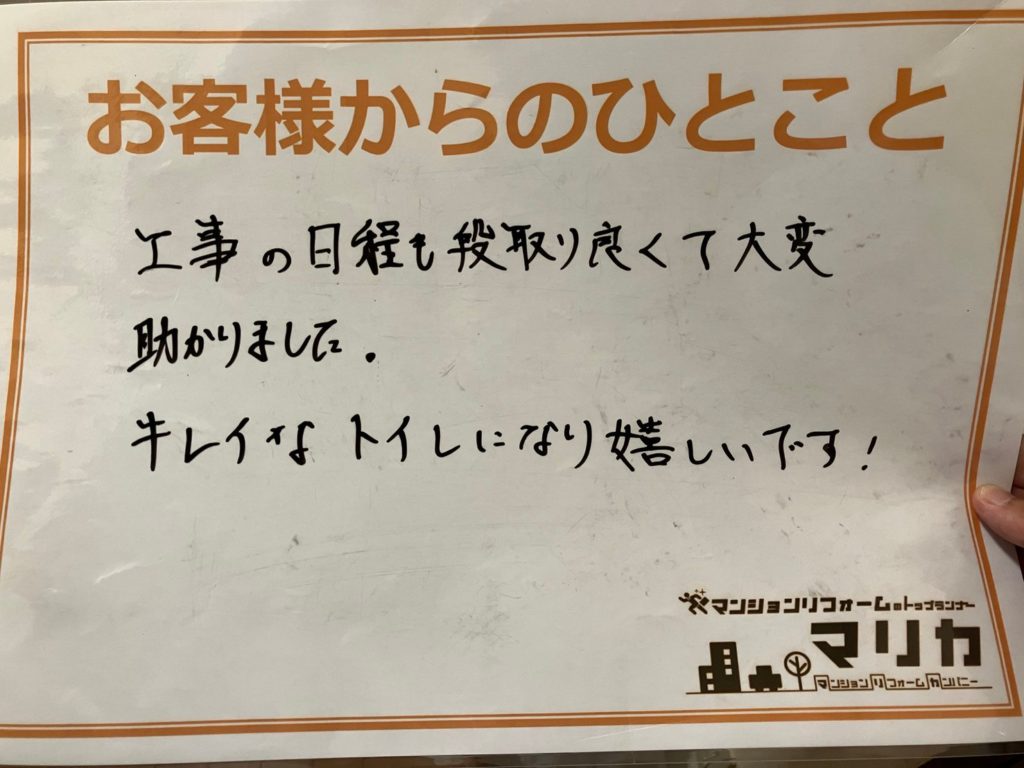 お客様からのひとこと
工事の日程も段取り良くて大変
助かりました.
キレイなトイレになり嬉しいです!
マンションリフォームのトップランナー
マリカ
マンションリフォームカンパニー